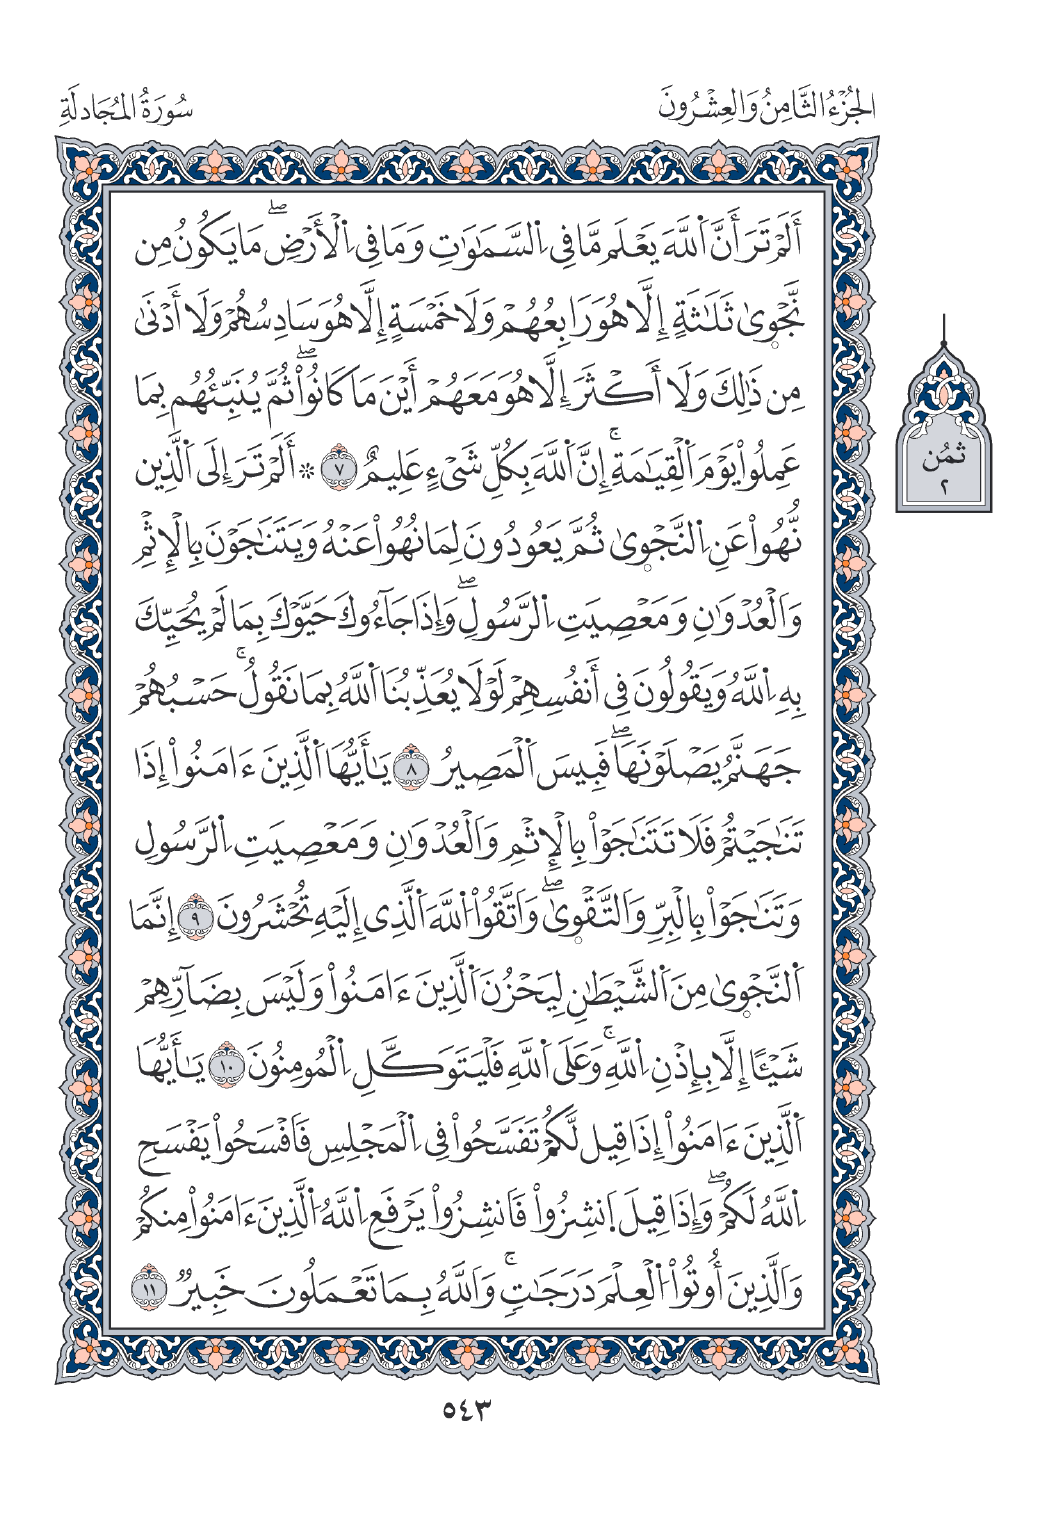 الجُزْءُ الثَّامِنُ وَالعِشْرُونَ
سُورَةُ المُجَادلَةِ
أَلَمْ تَرَ أَنَّ اَ۬للَّهَ يَعْلَم مَّا فِي اِ۬لسَّمَٰوَٰتِ وَمَا فِي اِ۬لْأَرْضِۖ مَا يَكُونُ مِن
نَّجْو۪يٰ ثَلَٰثَةٍ إِلَّا هُو رَابِعُهُمْ وَلَا خَمْسَةٍ إِلَّا هُو سَادِسُهُمْ وَلَا أَدْنَىٰ
مِن ذَٰلِكَ وَلَا أَكْثَرَ إِلَّا هُوَ مَعَهُمْ أَيْنَ مَا كَانُواْۖ ثُمَّ يُنَبِّئُهُم بِمَا
عَمِلُواْ يَوْمَ اَ۬لْقِيَٰمَةِۚ إِنَّ اَ۬للَّهَ بِكُلِّ شَيْءٍ عَلِيمٌ ٧ ۞ أَلَمْ تَرَ إِلَى اَ۬لَّذِين
نُّهُواْ عَنِ اِ۬لنَّجْو۪يٰ ثُمَّ يَعُودُونَ لِمَا نُهُواْ عَنْهُ وَيَتَنَٰجَوْنَ بِالْإِثْمِ
وَالْعُدْوَٰنِ وَمَعْصِيَتِ اِ۬لرَّسُولِۖ وَإِذَا جَآءُوكَ حَيَّوْكَ بِمَا لَمْ يُحَيِّكَ
بِهِ اِ۬للَّهُ وَيَقُولُونَ فِي أَنفُسِهِمْ لَوْلَا يُعَذِّبُنَا اَ۬للَّهُ بِمَا نَقُولُۚ حَسْبُهُمْ
جَهَنَّمُ يَصْلَوْنَهَاۖ فَبِيسَ اَ۬لْمَصِيرُ ٨ يَٰأَيُّهَا اَ۬لَّذِينَ ءَامَنُواْ إِذَا
تَنَٰجَيْتُمْ فَلَا تَتَنَٰجَوْاْ بِالْإِثْمِ وَالْعُدْوَٰنِ وَمَعْصِيَتِ اِ۬لرَّسُولِ
وَتَنَٰجَوْاْ بِالْبِرِّ وَالتَّقْو۪يٰۖ وَاتَّقُواْ اُ۬للَّهَ اَ۬لَّذِي إِلَيْهِ تُحْشَرُونَ ٩ إِنَّمَا
اَ۬لنَّجْو۪يٰ مِنَ اَ۬لشَّيْطَٰنِ لِيَحْزُنَ اَ۬لَّذِينَ ءَامَنُواْ وَلَيْسَ بِضَآرِّهِمْ
شَيْـًٔا إِلَّا بِإِذْنِ اِ۬للَّهِۚ وَعَلَى اَ۬للَّهِ فَلْيَتَوَكَّلِ اِ۬لْمُومِنُونَ ١٠ يَٰأَيُّهَا
اَ۬لَّذِينَ ءَامَنُواْ إِذَا قِيل لَّكُمْ تَفَسَّحُواْ فِي اِ۬لْمَجْلِسِ فَافْسَحُواْ يَفْسَحِ
اِ۬للَّهُ لَكُمْۖ وَإِذَا قِيلَ اَ۪نشِزُواْ فَانشِزُواْ يَرْفَعِ اِ۬للَّهُ اُ۬لَّذِينَ ءَامَنُواْ مِنكُمْ
وَالَّذِينَ أُوتُواْ اُ۬لْعِلْمَ دَرَجَٰتٖۚ وَاللَّهُ بِمَا تَعْمَلُونَ خَبِيرٞ ١١
ثُمُن
٢
٥٤٣